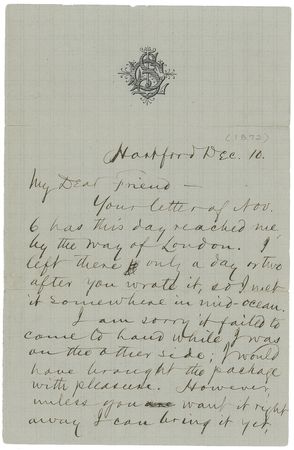 (1872)
Hartford Dec. 10.
My Dear Friend —
Your letter of Nov.
6 has this day reached me
by the way of London. I
left there only a day or two
after you wrote it, so I met
it somewhere in mid-ocean.
I am sorry it failed to
come to hand while I was
on the other side; I would
have brought the package
with pleasure. However,
unless you want it right
away I can bring it yet,